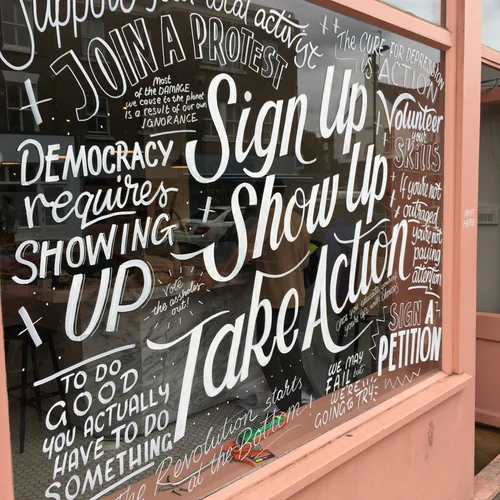 Support your local activist
JOIN A PROTEST
Most
of the DAMAGE
we cause to the planet
is a result of our own
IGNORANCE
The CURE FOR DEPRESSION
is ACTION
Sign Up
Show Up
Take Action
DEMOCRACY
requires
SHOWING
UP
Vote
the assholes
out!
Volunteer
your
SKILLS
If you're not
outraged
you're not
paying
attention
SIGN A
PETITION
TO DO
GOOD
YOU ACTUALLY
HAVE TO DO
SOMETHING
the Revolution starts
at the Bottom!
WE MAY
FAIL but
WE'RE
GOING TO TRY